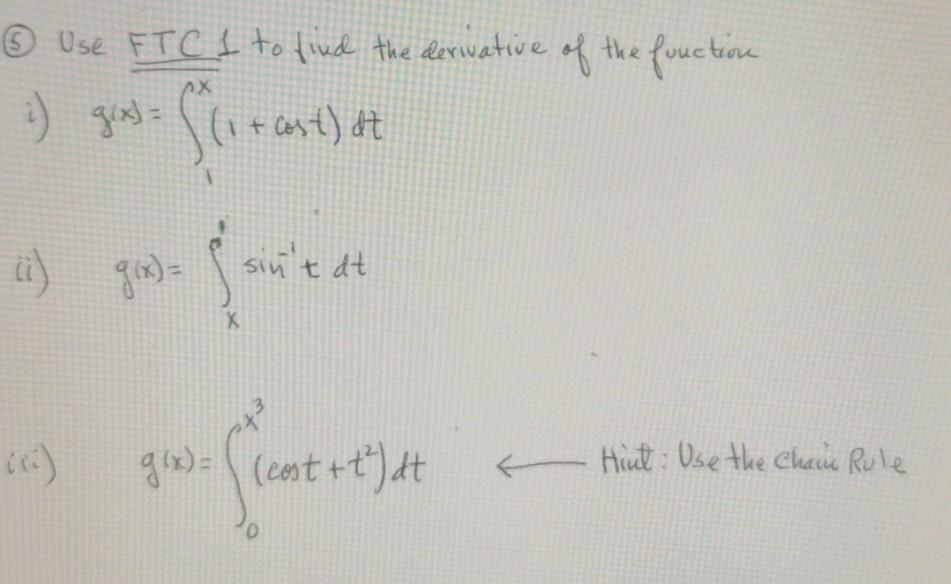 ⑤ Use FTC 1 to find the derivative of the function
i) g(x) = ∫₁ˣ (1 + cos t) dt
ii) g(x) = ∫ₓ¹ sin⁻¹ t dt
iii) g(x) = ∫₀^x³ (cos t + t²) dt ← Hint : Use the Chain Rule